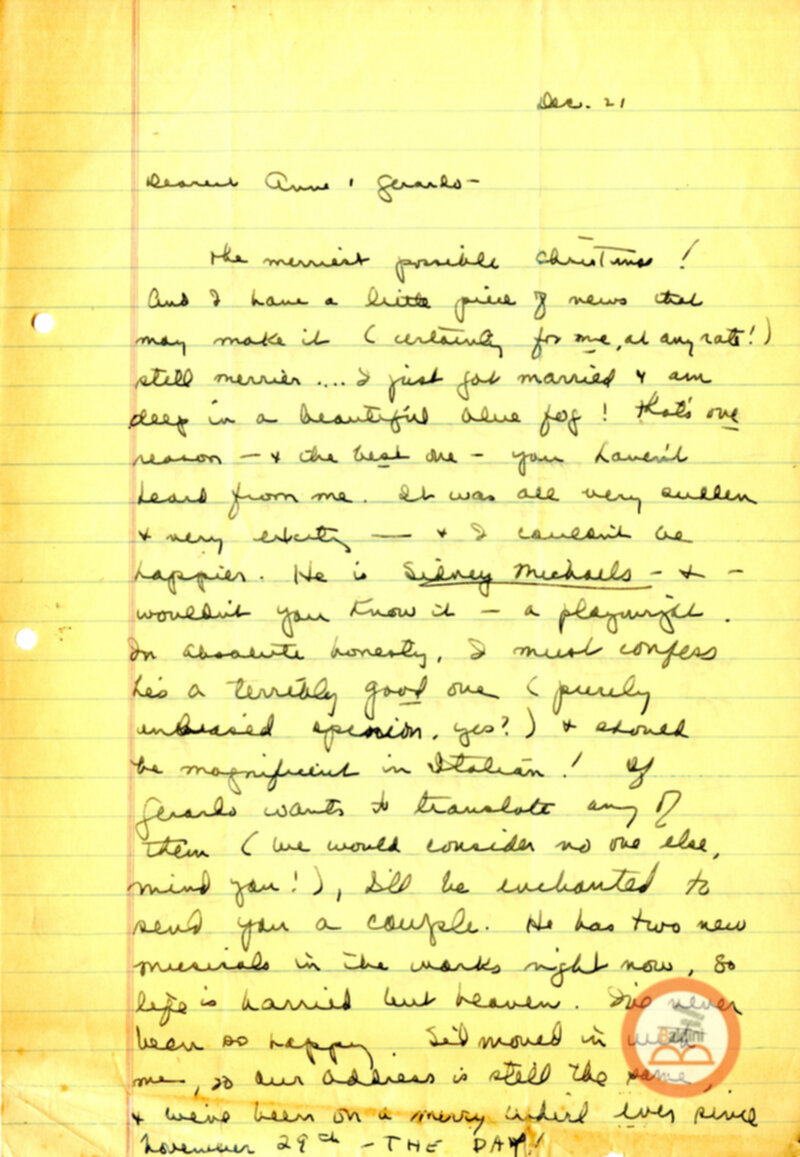 Dec. 21
Dearest Anne & Gerardo-
The merriest possible Christmas!
And I have a little piece of news that
may make it (certainly for me, at any rate!)
still merrier.... I just got married & am
deep in a beautiful blue fog! That's one
reason - & the best one - you haven't
heard from me. It was all very sudden
& very exciting — & I couldn't be
happier. He is Sidney Michaels - & -
wouldn't you know it - a playwright.
In absolute honesty, I must confess
he's a terribly good one (purely
unbiased opinion, yes?) & should
be magnificent in Italian! If
Gerardo wants to translate any of
them (we would consider no one else,
mind you!), I'll be enchanted to
send you a couple. He has two new
musicals in the works right now, so
life is harried but heaven. I've never
been so happy. Sid moved in with
me, so our address is still the same,
& we've been on a merry whirl ever since
November 29th - THE DAY!